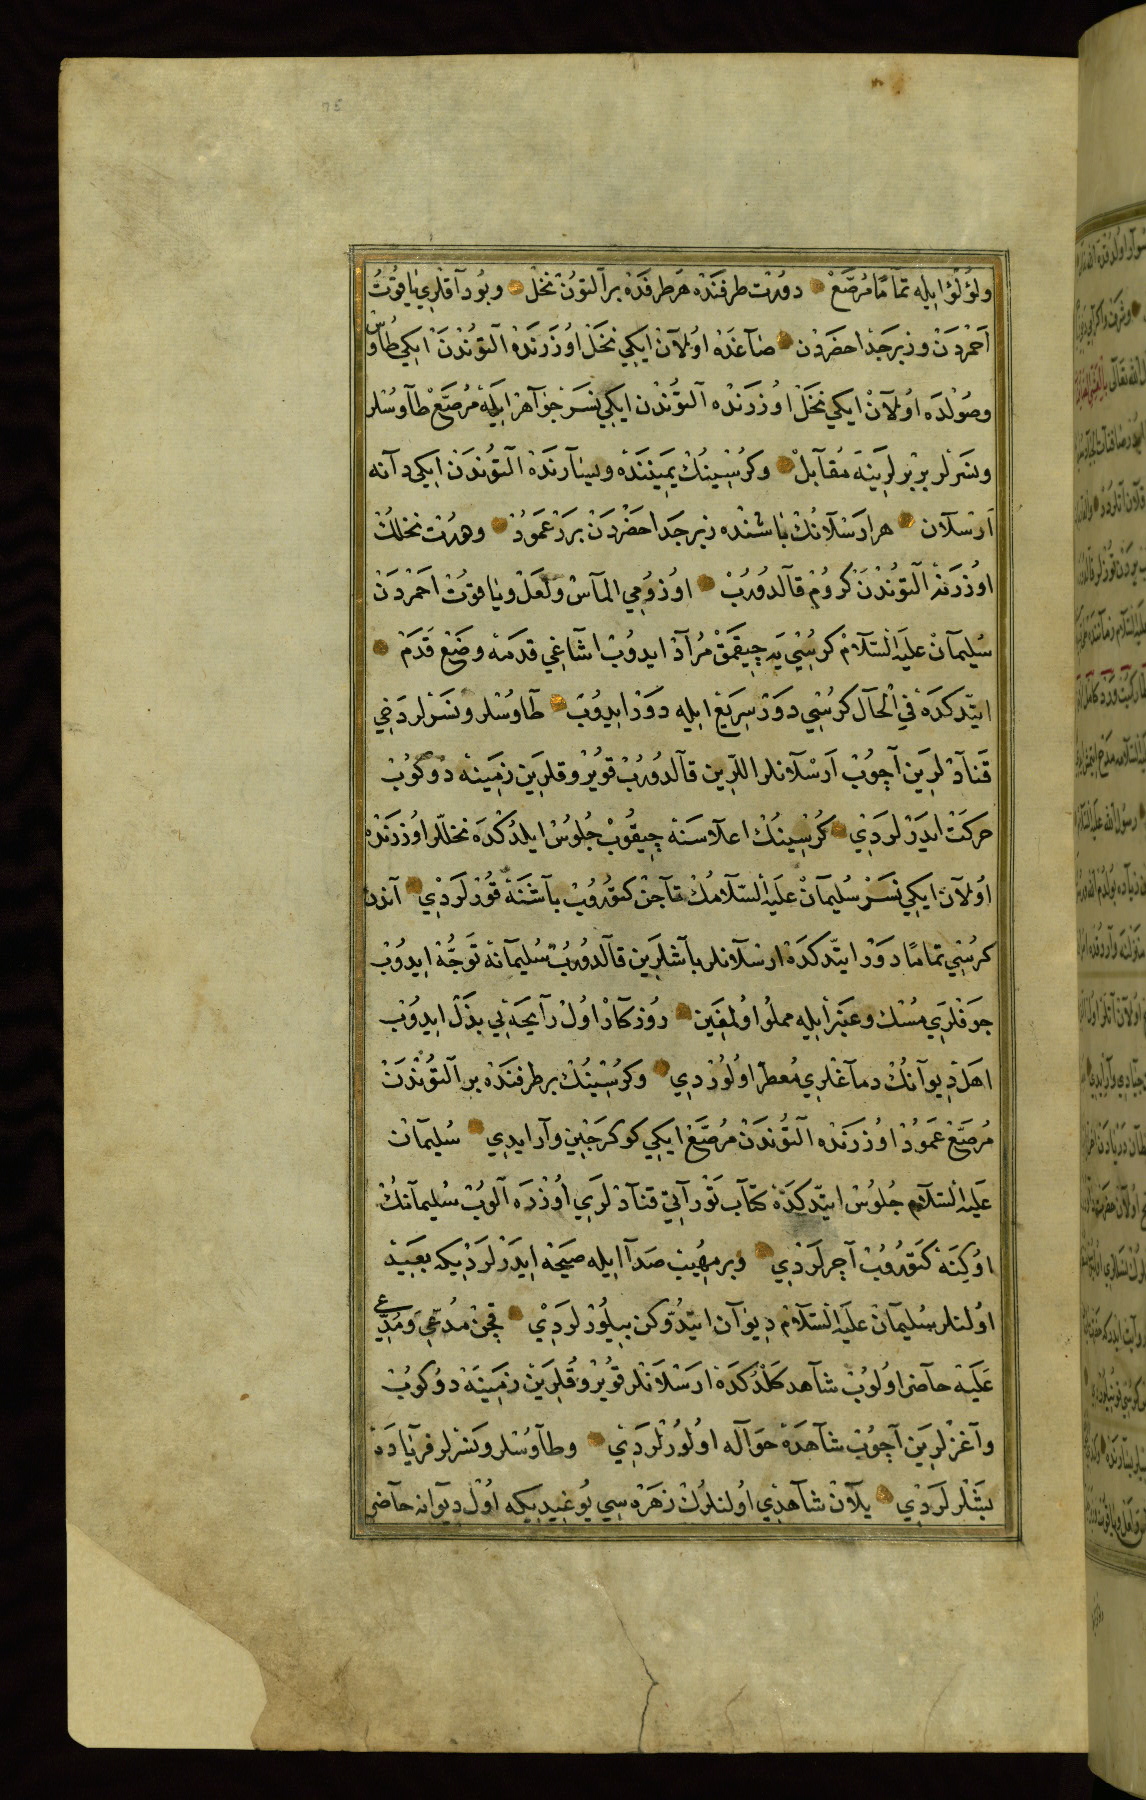 ولؤلؤ ايله تمامًا مُرصّع دورت طرفنده هر طرفده بر آلتون نخل و بوداقلري ياقوت
احمردن و زبرجد احضردن صاغنده اولان ايكي نخل اوزرنده آلتوندن ايكي طاوس
وصولده اولان ايكي نخل اوزرنده آلتوندن ايكي نسر جواهر ايله مرصّع طاوسلر
ونسرلر بربرلرينه مقابل وكرسينك يميننده ويسارنده آلتوندن ايكي دانه
ارسلان هر ارسلانك باشنده زبرجد احضردن بر عمود و هر دورت نخلك
اوزرنه آلتوندن كروم قالدوروب اوزومي الماس ولعل وياقوت احمردن
سليمان عليه السلام كرسي يه چيقمق مراد ايدوب اشاغي قدمه وضع قدم
ايتدكده في الحال كرسي دور سريع ايله دور ايدوب طاوسلر و نسرلر دخي
قنادلرين آچوب ارسلانلر اللرين قالدوروب قويروقلرين زمينه دوكوب
حركت ايدرلردي كرسينك اعلاسنه چيقوب جلوس ايلدكده نخللر اوزرنده
اولان ايكي نسر سليمان عليه السلامك تاجن كتوروب باشنه قورلردي آندن
كرسي تمامًا دور ايتدكده ارسلانلر باشلرين قالدوروب سليمانه توجّه ايدوب
جوفلري مسك و عنبر ايله مملو اولمغين روزكار اول رايحه يي بذل ايدوب
اهل ديوانك دماغلري معطّر اولوردي وكرسينك بر طرفنده بر آلتوندن
مرصّع عمود اوزرنده آلتوندن مرصّع ايكي كوكرجين وار ايدي سليمان
عليه السلام جلوس ايتدكده كتاب توراتي قنادلري اوزره آلوب سليمانك
اوكينه كتوروب آچرلردي وبر مهيب صدا ايله صيحه ايدرلرديكه بعيد
اولنلر سليمان عليه السلام ديوان ايتدوكن بيلورلردي قچن مدعي و مدّعي
عليه حاضر اولوب شاهد كلدكده ارسلانلر قويروقلرين زمينه دوكوب
وآغزلرين آچوب شاهده حواله اولورلردي وطاوسلر و نسرلر فرياده
بشلرلردي يلان شاهدي اولنلرك زهره سي يوغيديكه اول ديوانه حاضر